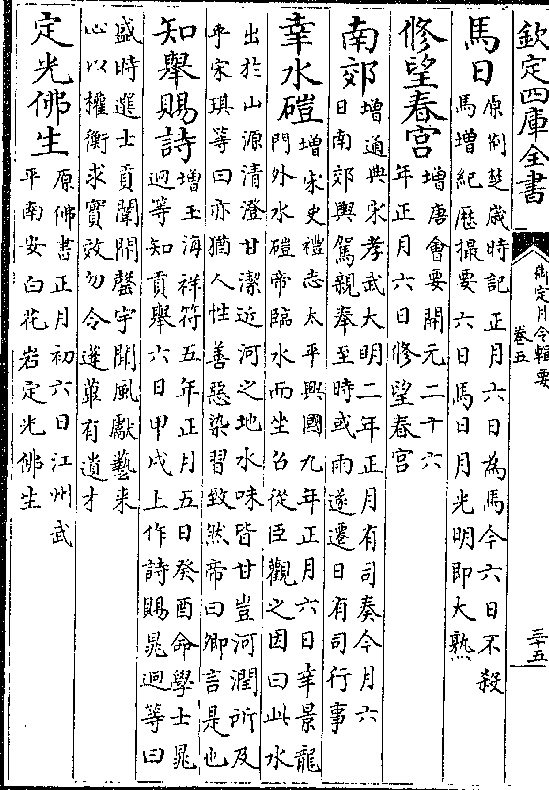 欽定四庫全書
御定月令輯要
卷五
三十五
馬日
原荆楚嵗時記正月六日為馬今六日不殺
馬增紀歴撮要六日馬日月光明即大熟
修望春宫
增唐會要開元二十六
年正月六日修望春宫
南郊
增通典宋孝武大明二年正月有司奏今月六
日南郊輿駕親奉至時或雨遂遷日有司行事
幸水磑
增宋史禮志太平興國九年正月六日幸景龍
門外水磑帝臨水而坐召從臣觀之因曰此水
出於山源清澄甘潔近河之地水味皆甘豈河潤所及
乎宋琪等曰亦猶人性善惡染習致然帝曰卿言是也
知舉賜詩
增玉海祥符五年正月五日癸酉命學士晁
迥等知貢舉六日甲戌上作詩賜晁迥等曰
盛時進士貢闈開馨宇聞風獻藝来
心以權衡求實效勿令遺草有遺才
定光佛生
原佛書正月初六日江州武
平南安白花岩定光佛生